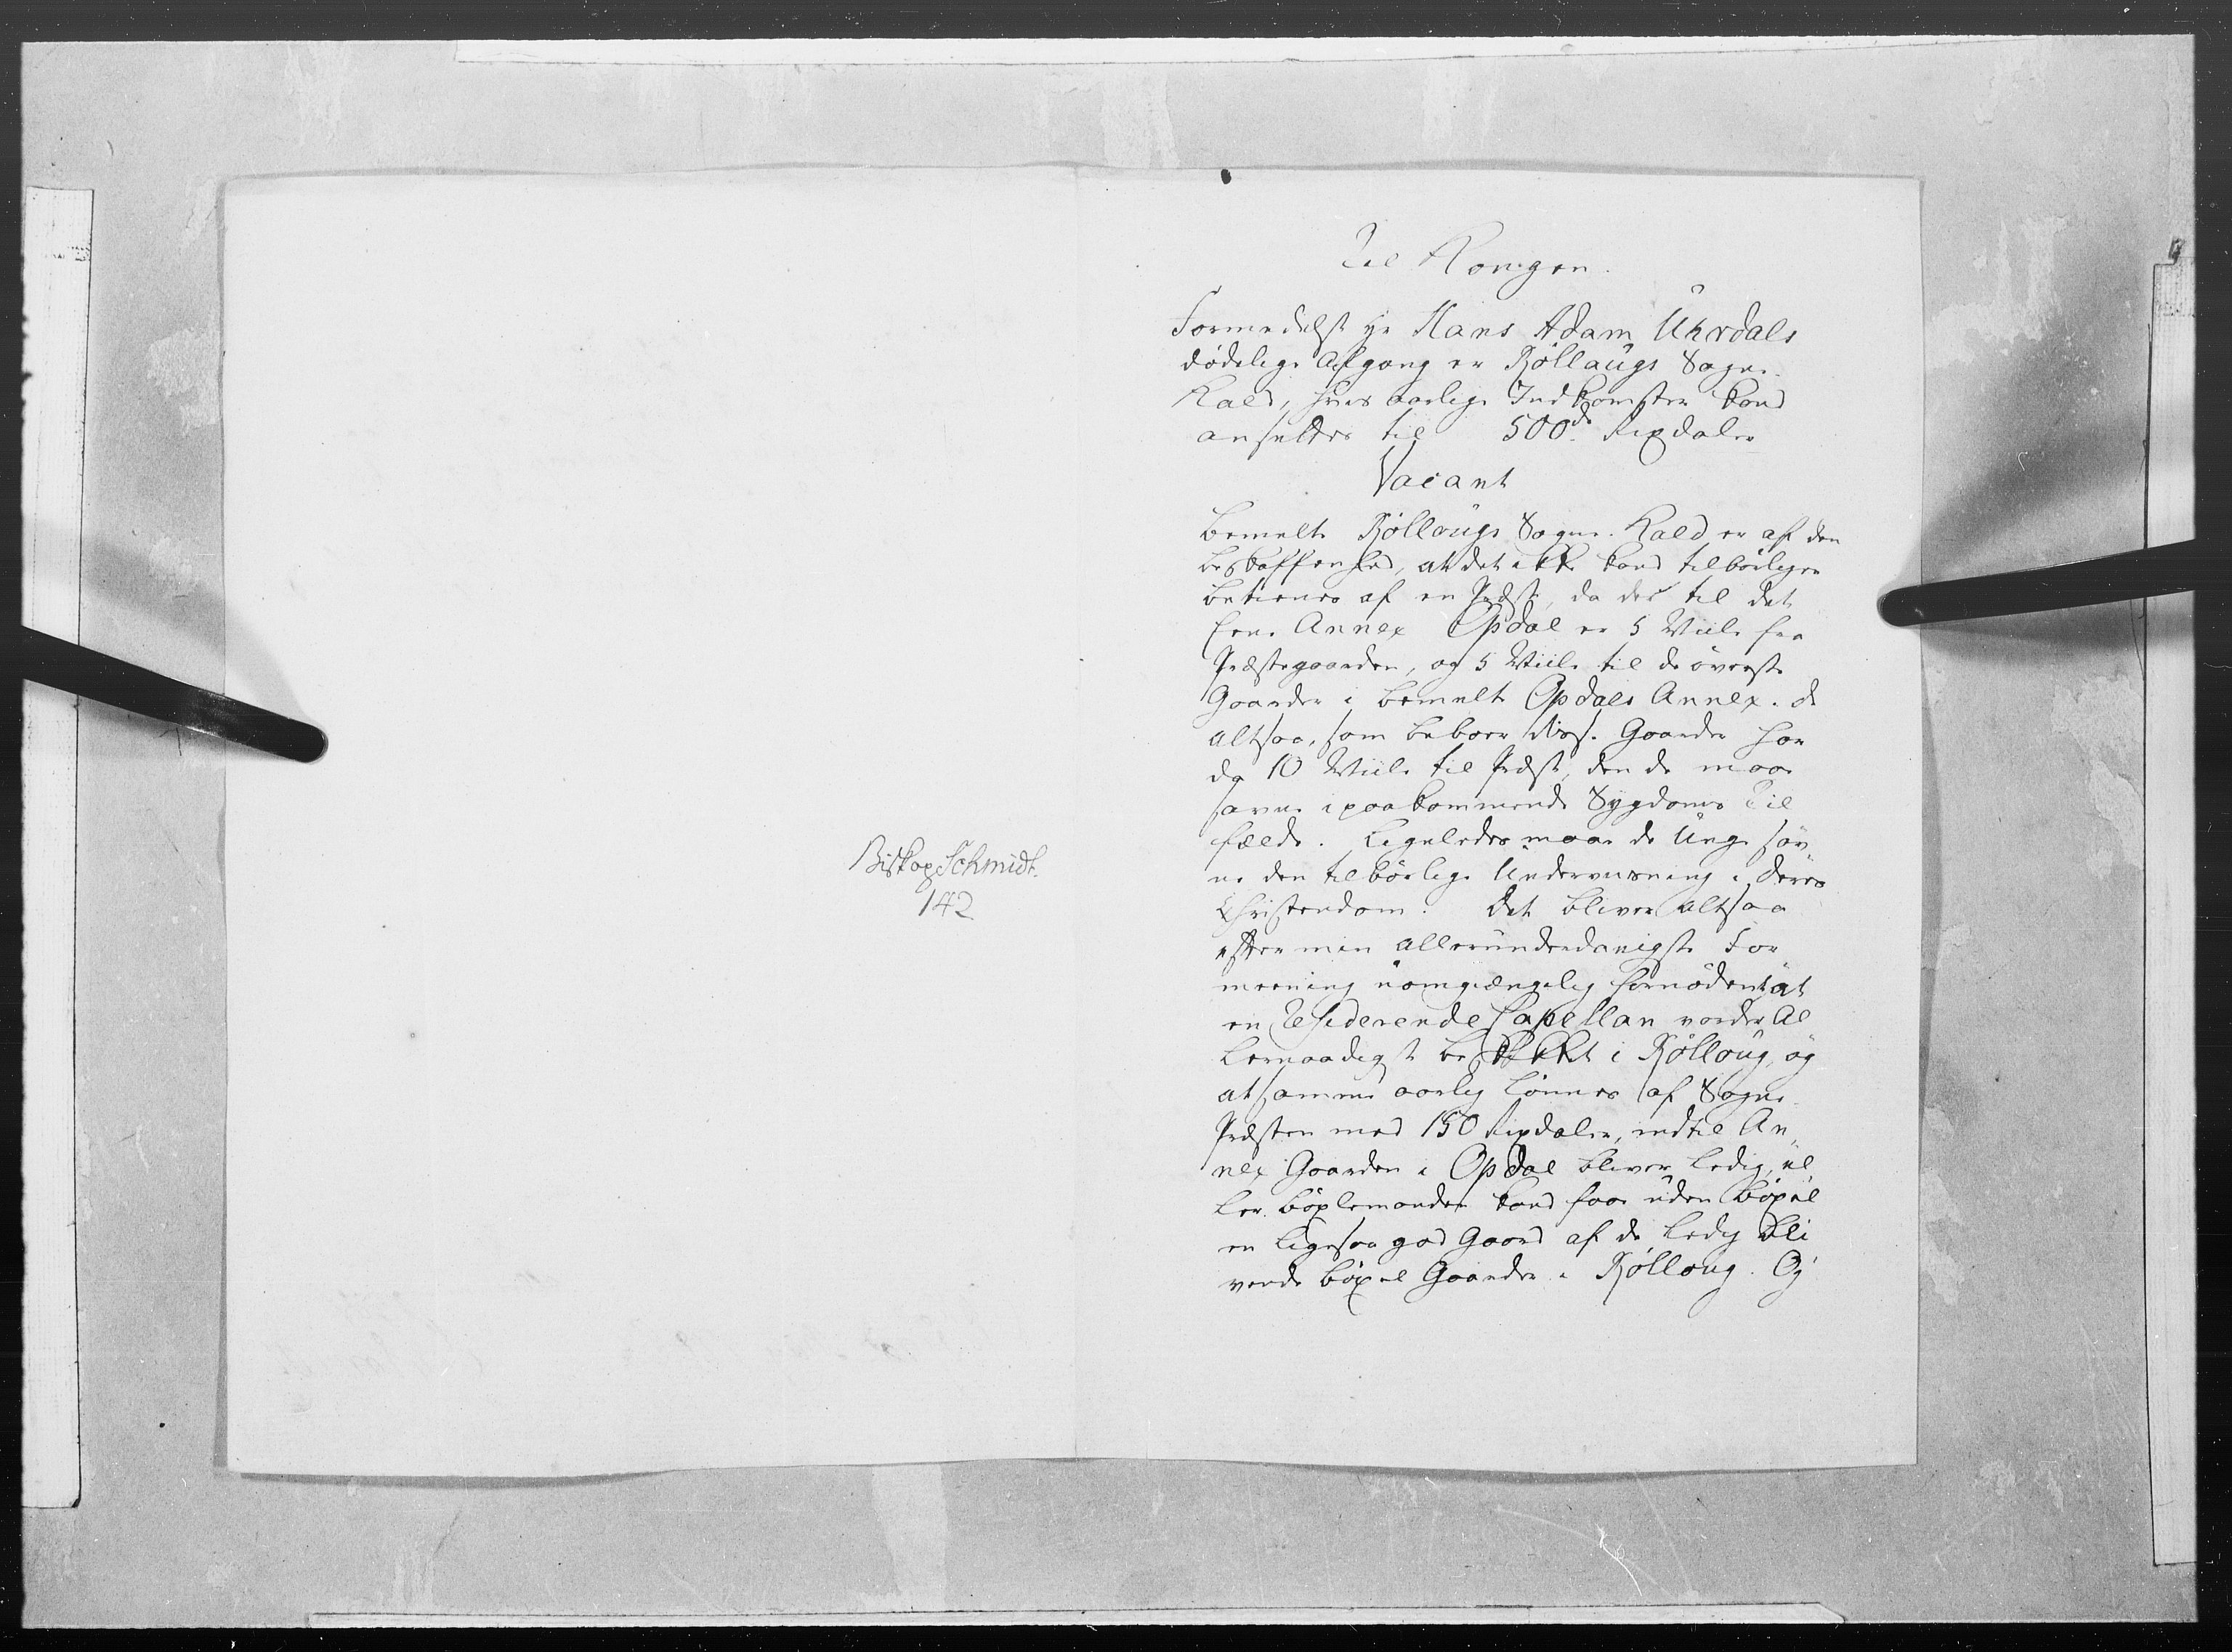 Biskop Schmidt.
142
Til Kongen.
Formedelst Hr Hans Adam Uhrdals
dødelige Afgang er Rollaugs Sogne-
Kald, hvis aarlige Indkomster kand
ansættes til 500de Rixdaler
Vacant
bemelte Rollaugs Sogne-Kald er af den
beskaffenhed, at det ikke kand tilbørligen
betienes af en Præst, da der til det
Eene Annex Opdal er 5 Miile fra
Præstegaarden, og 5 Miile til de øverste
Gaarder i bemelte Opdals Annex. de
altsaa, som beboer disse Gaarder har
da 10 Miile til Præst, den de maae
savne i paakommende Sygdoms Til
fælde. Ligeledes maae de Unge sav
ne den tilbørlige Underviisning i deres
Christendom. Det bliver altsaa
efter min allerunderdanigste For
meening uomgiængelig fornødent at
en Residerende Capellan vorder Al
lernaadigst beskikket i Rolloug, og
at samme aarlig lønnes af Sogne-
Præsten med 150 Rixdaler, indtil An
nex Gaarden i Opdal bliver ledig, el
ler böxlemanden kand faae uden böxel
en ligesaa god Gaard af de ledig bli
vende böxel Gaarder i Rolloug. Og